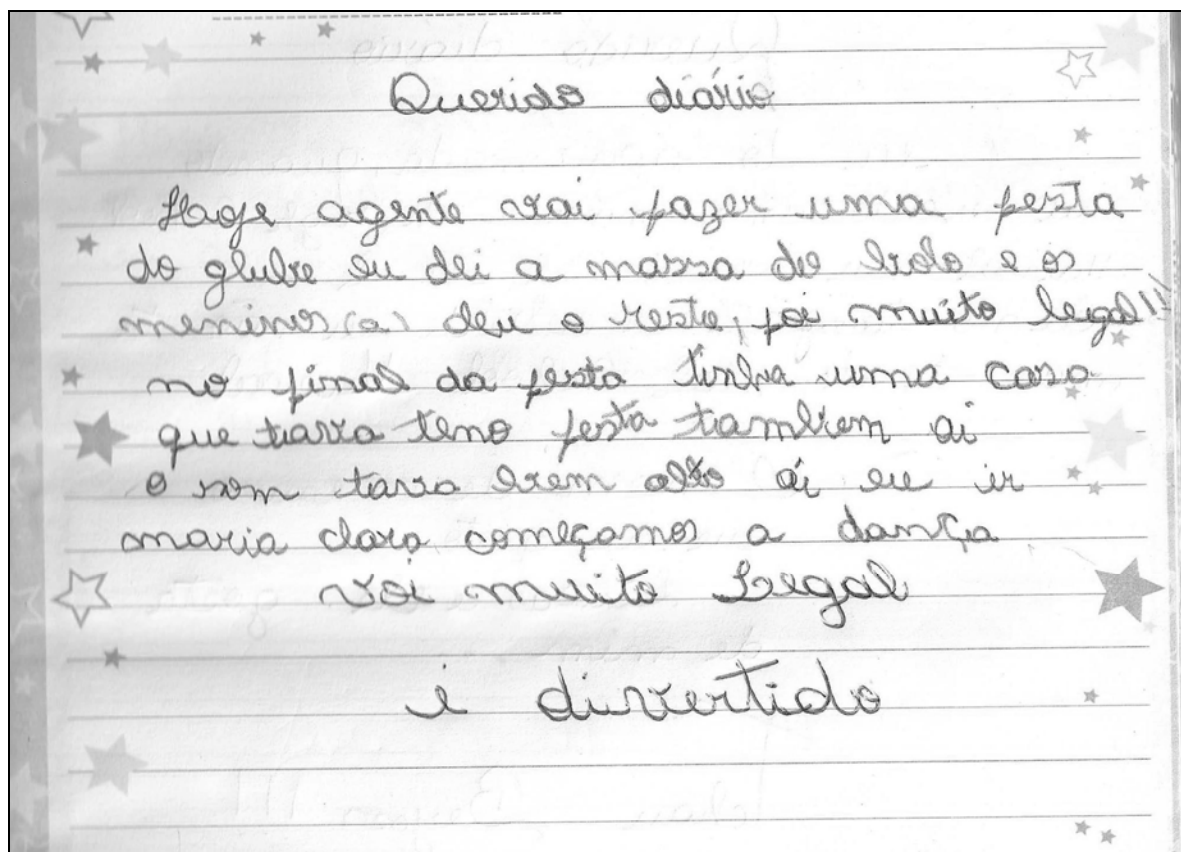 Querido diário
Hoge agente vai fazer uma festa
do glube eu dei a massa do bolo e os
meninos(a) deu o resto, foi muito legal!!
no final da festa tinha uma casa
que tava teno festa tambem ai
o som tava bem alto ai eu ir
maria clara começamos a dança
voi muito Legal
i divertido